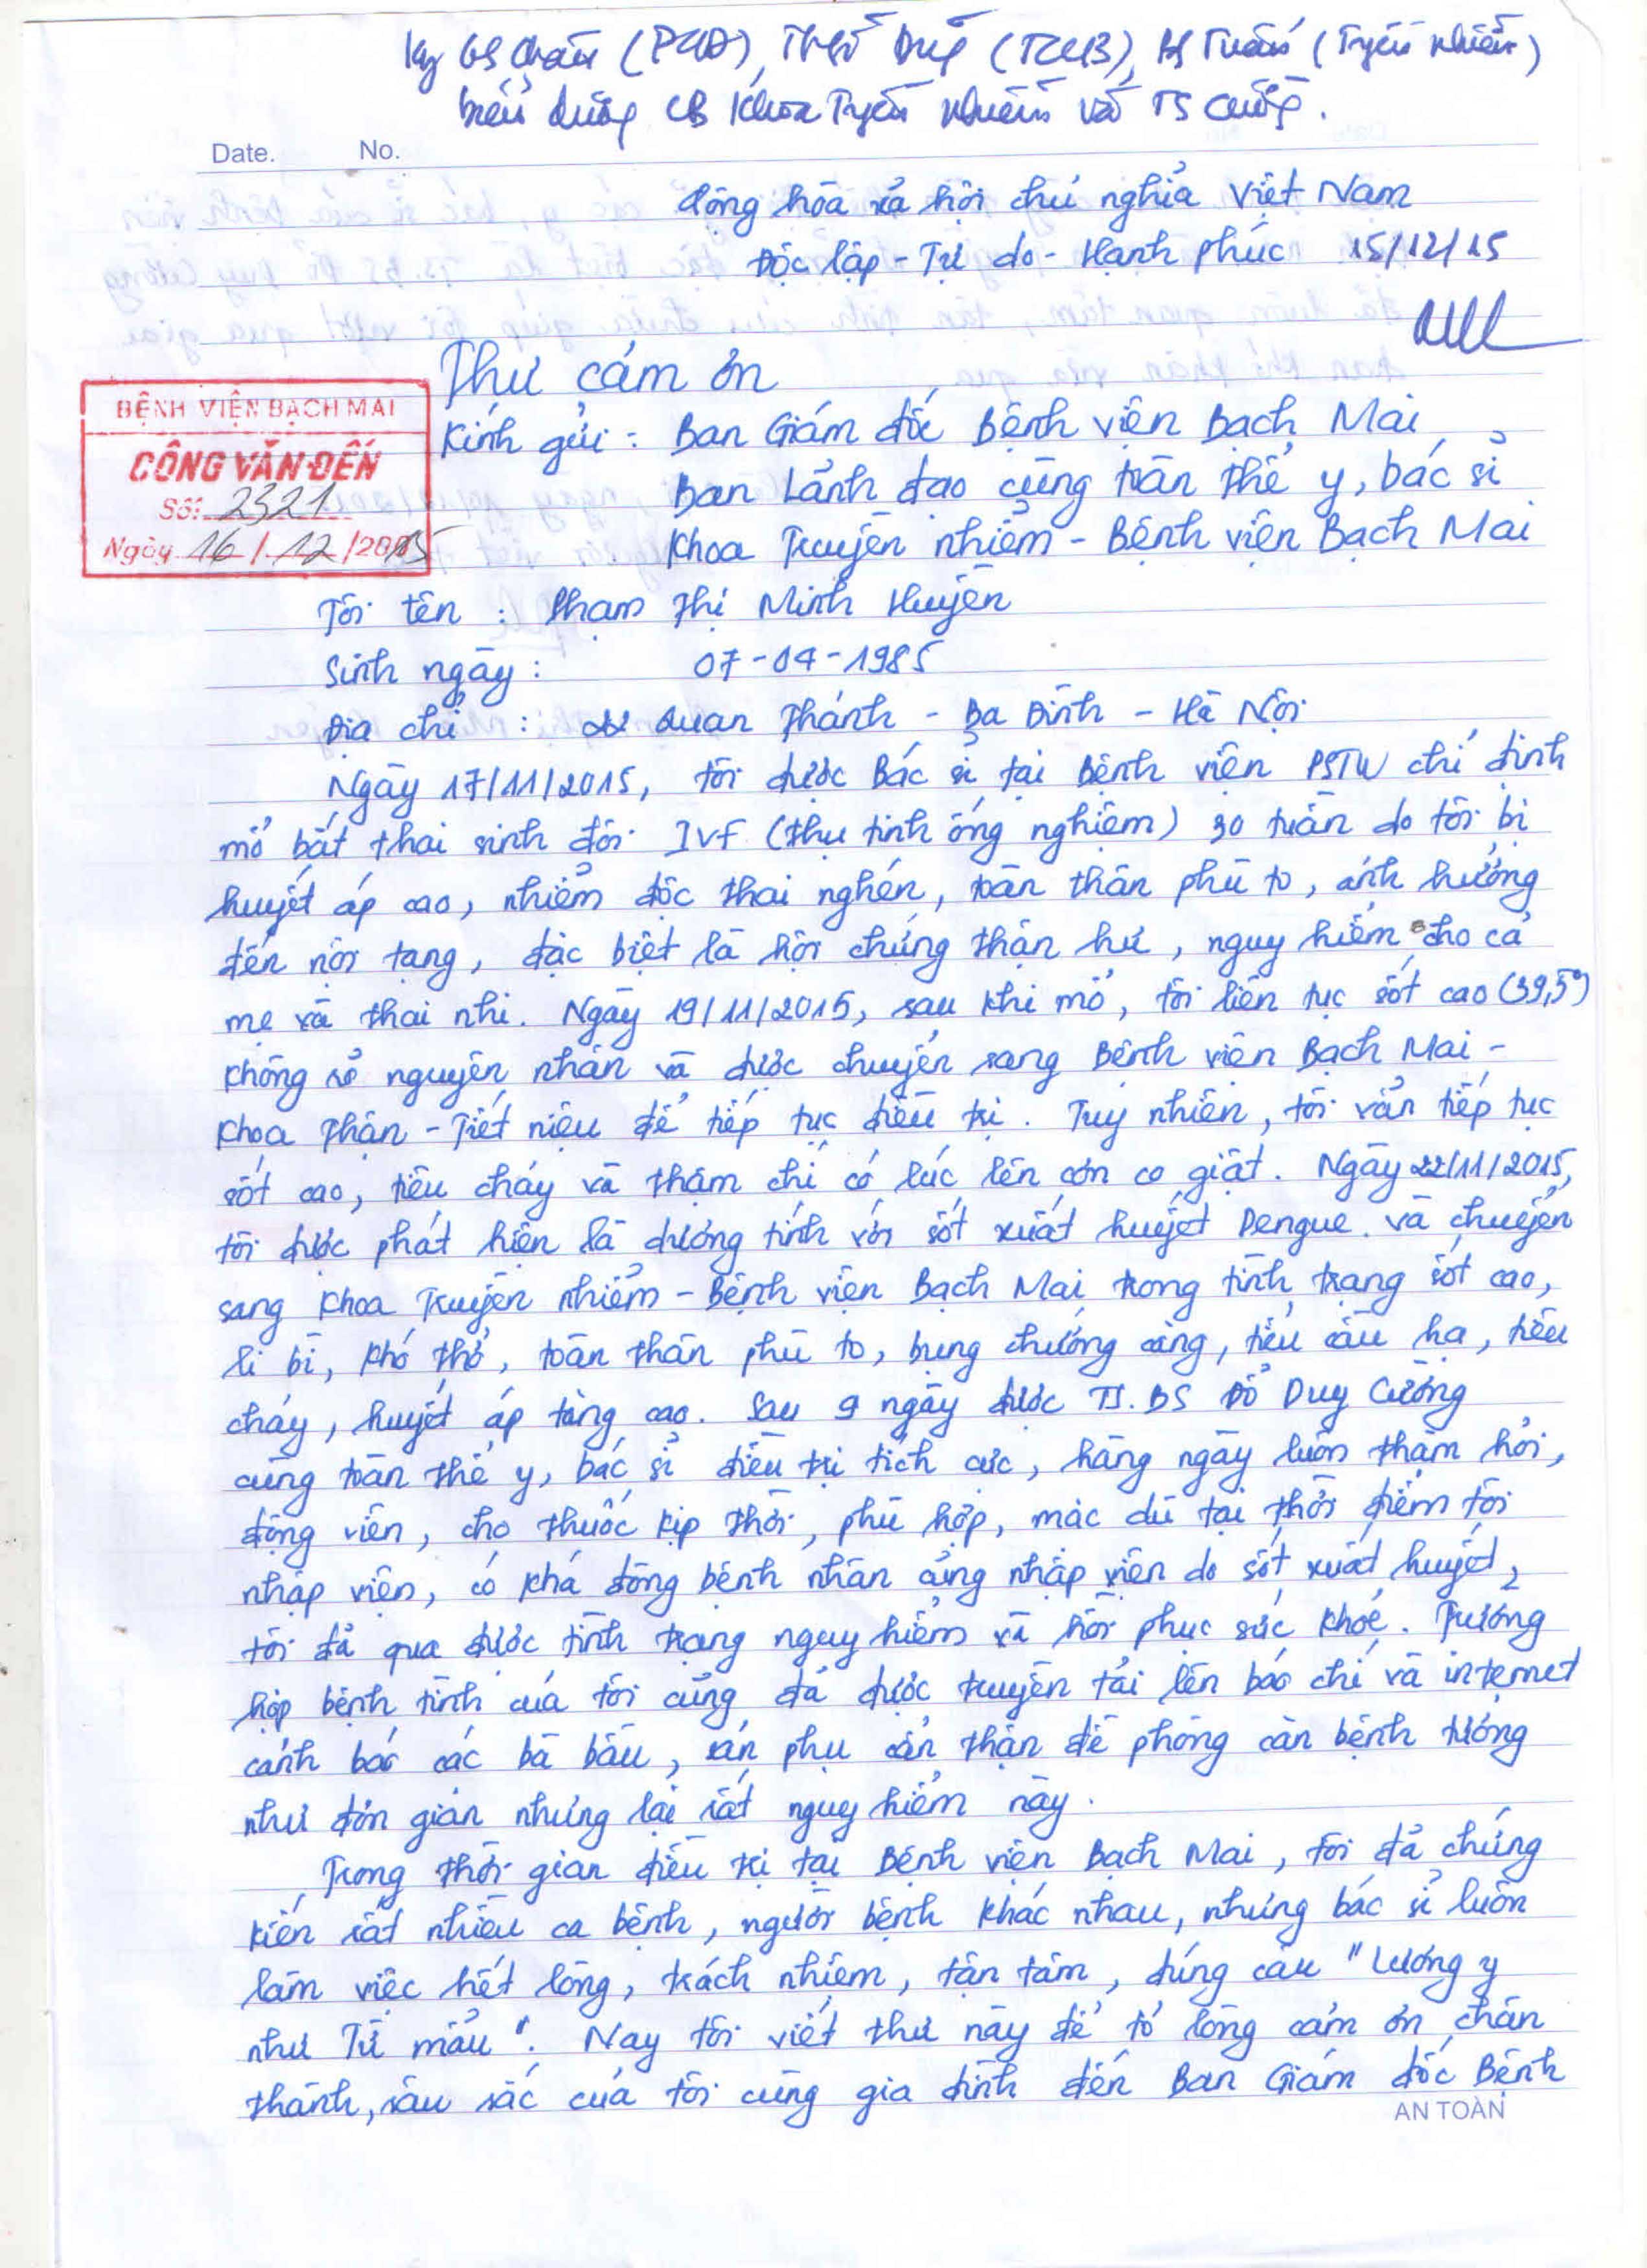 (PGĐ), (TCCB), BS Tuấn (Truyền nhiễm)
biểu dương CB Khoa Truyền nhiễm và TS Cường.
Date. No.
Cộng hòa xã hội chủ nghĩa Việt Nam
Độc lập - Tự do - Hạnh phúc 15/12/15
Thư cám ơn
BỆNH VIỆN BẠCH MAI
CÔNG VĂN ĐẾN
Số: 2321
Ngày 16/12/2015
Kính gửi: Ban Giám đốc Bệnh viện Bạch Mai
Ban Lãnh đạo cùng toàn thể y, bác sĩ
Khoa Truyền nhiễm - Bệnh viện Bạch Mai
Tôi tên : Phạm Thị Minh Huyền
Sinh ngày: 07-04-1985
Địa chỉ : Quan Thánh - Ba Đình - Hà Nội
Ngày 17/11/2015, tôi được Bác sĩ tại Bệnh viện PSTW chỉ định
mổ bắt thai sinh đôi IVF (thụ tinh ống nghiệm) 30 tuần do tôi bị
huyết áp cao, nhiễm độc thai nghén, toàn thân phù to, ảnh hưởng
đến nội tạng, đặc biệt là hội chứng thận hư, nguy hiểm cho cả
mẹ và thai nhi. Ngày 19/11/2015, sau khi mổ, tôi liên tục sốt cao (39,5°)
không rõ nguyên nhân và được chuyển sang Bệnh viện Bạch Mai -
Khoa Thận - Tiết niệu để tiếp tục điều trị. Tuy nhiên, tôi vẫn tiếp tục
sốt cao, tiêu chảy và thậm chí có lúc lên cơn co giật. Ngày 22/11/2015,
tôi được phát hiện là dương tính với sốt xuất huyết Dengue. và chuyển
sang Khoa Truyền nhiễm - Bệnh viện Bạch Mai trong tình trạng sốt cao,
li bì, khó thở, toàn thân phù to, bụng chướng căng, tiểu cầu hạ, tiêu
chảy, huyết áp tăng cao. Sau 9 ngày được TS.BS Đỗ Duy Cường
cùng toàn thể y, bác sĩ điều trị tích cực, hàng ngày luôn thăm hỏi,
động viên, cho thuốc kịp thời, phù hợp, mặc dù tại thời điểm tôi
nhập viện, có khá đông bệnh nhân cũng nhập viện do sốt xuất huyết,
tôi đã qua được tình trạng nguy hiểm và hồi phục sức khỏe. Trường
hợp bệnh tình của tôi cũng đã được truyền tải lên báo chí và internet
cảnh báo các bà bầu, sản phụ cẩn thận đề phòng căn bệnh tưởng
như đơn giản nhưng lại rất nguy hiểm này.
Trong thời gian điều trị tại Bệnh viện Bạch Mai, tôi đã chứng
kiến rất nhiều ca bệnh, người bệnh khác nhau, nhưng bác sĩ luôn
làm việc hết lòng, trách nhiệm, tận tâm, đúng câu "Lương y
như Từ mẫu". Nay tôi viết thư này để tỏ lòng cảm ơn chân
thành, sâu sắc của tôi cùng gia đình đến Ban Giám đốc Bệnh
AN TOÀN